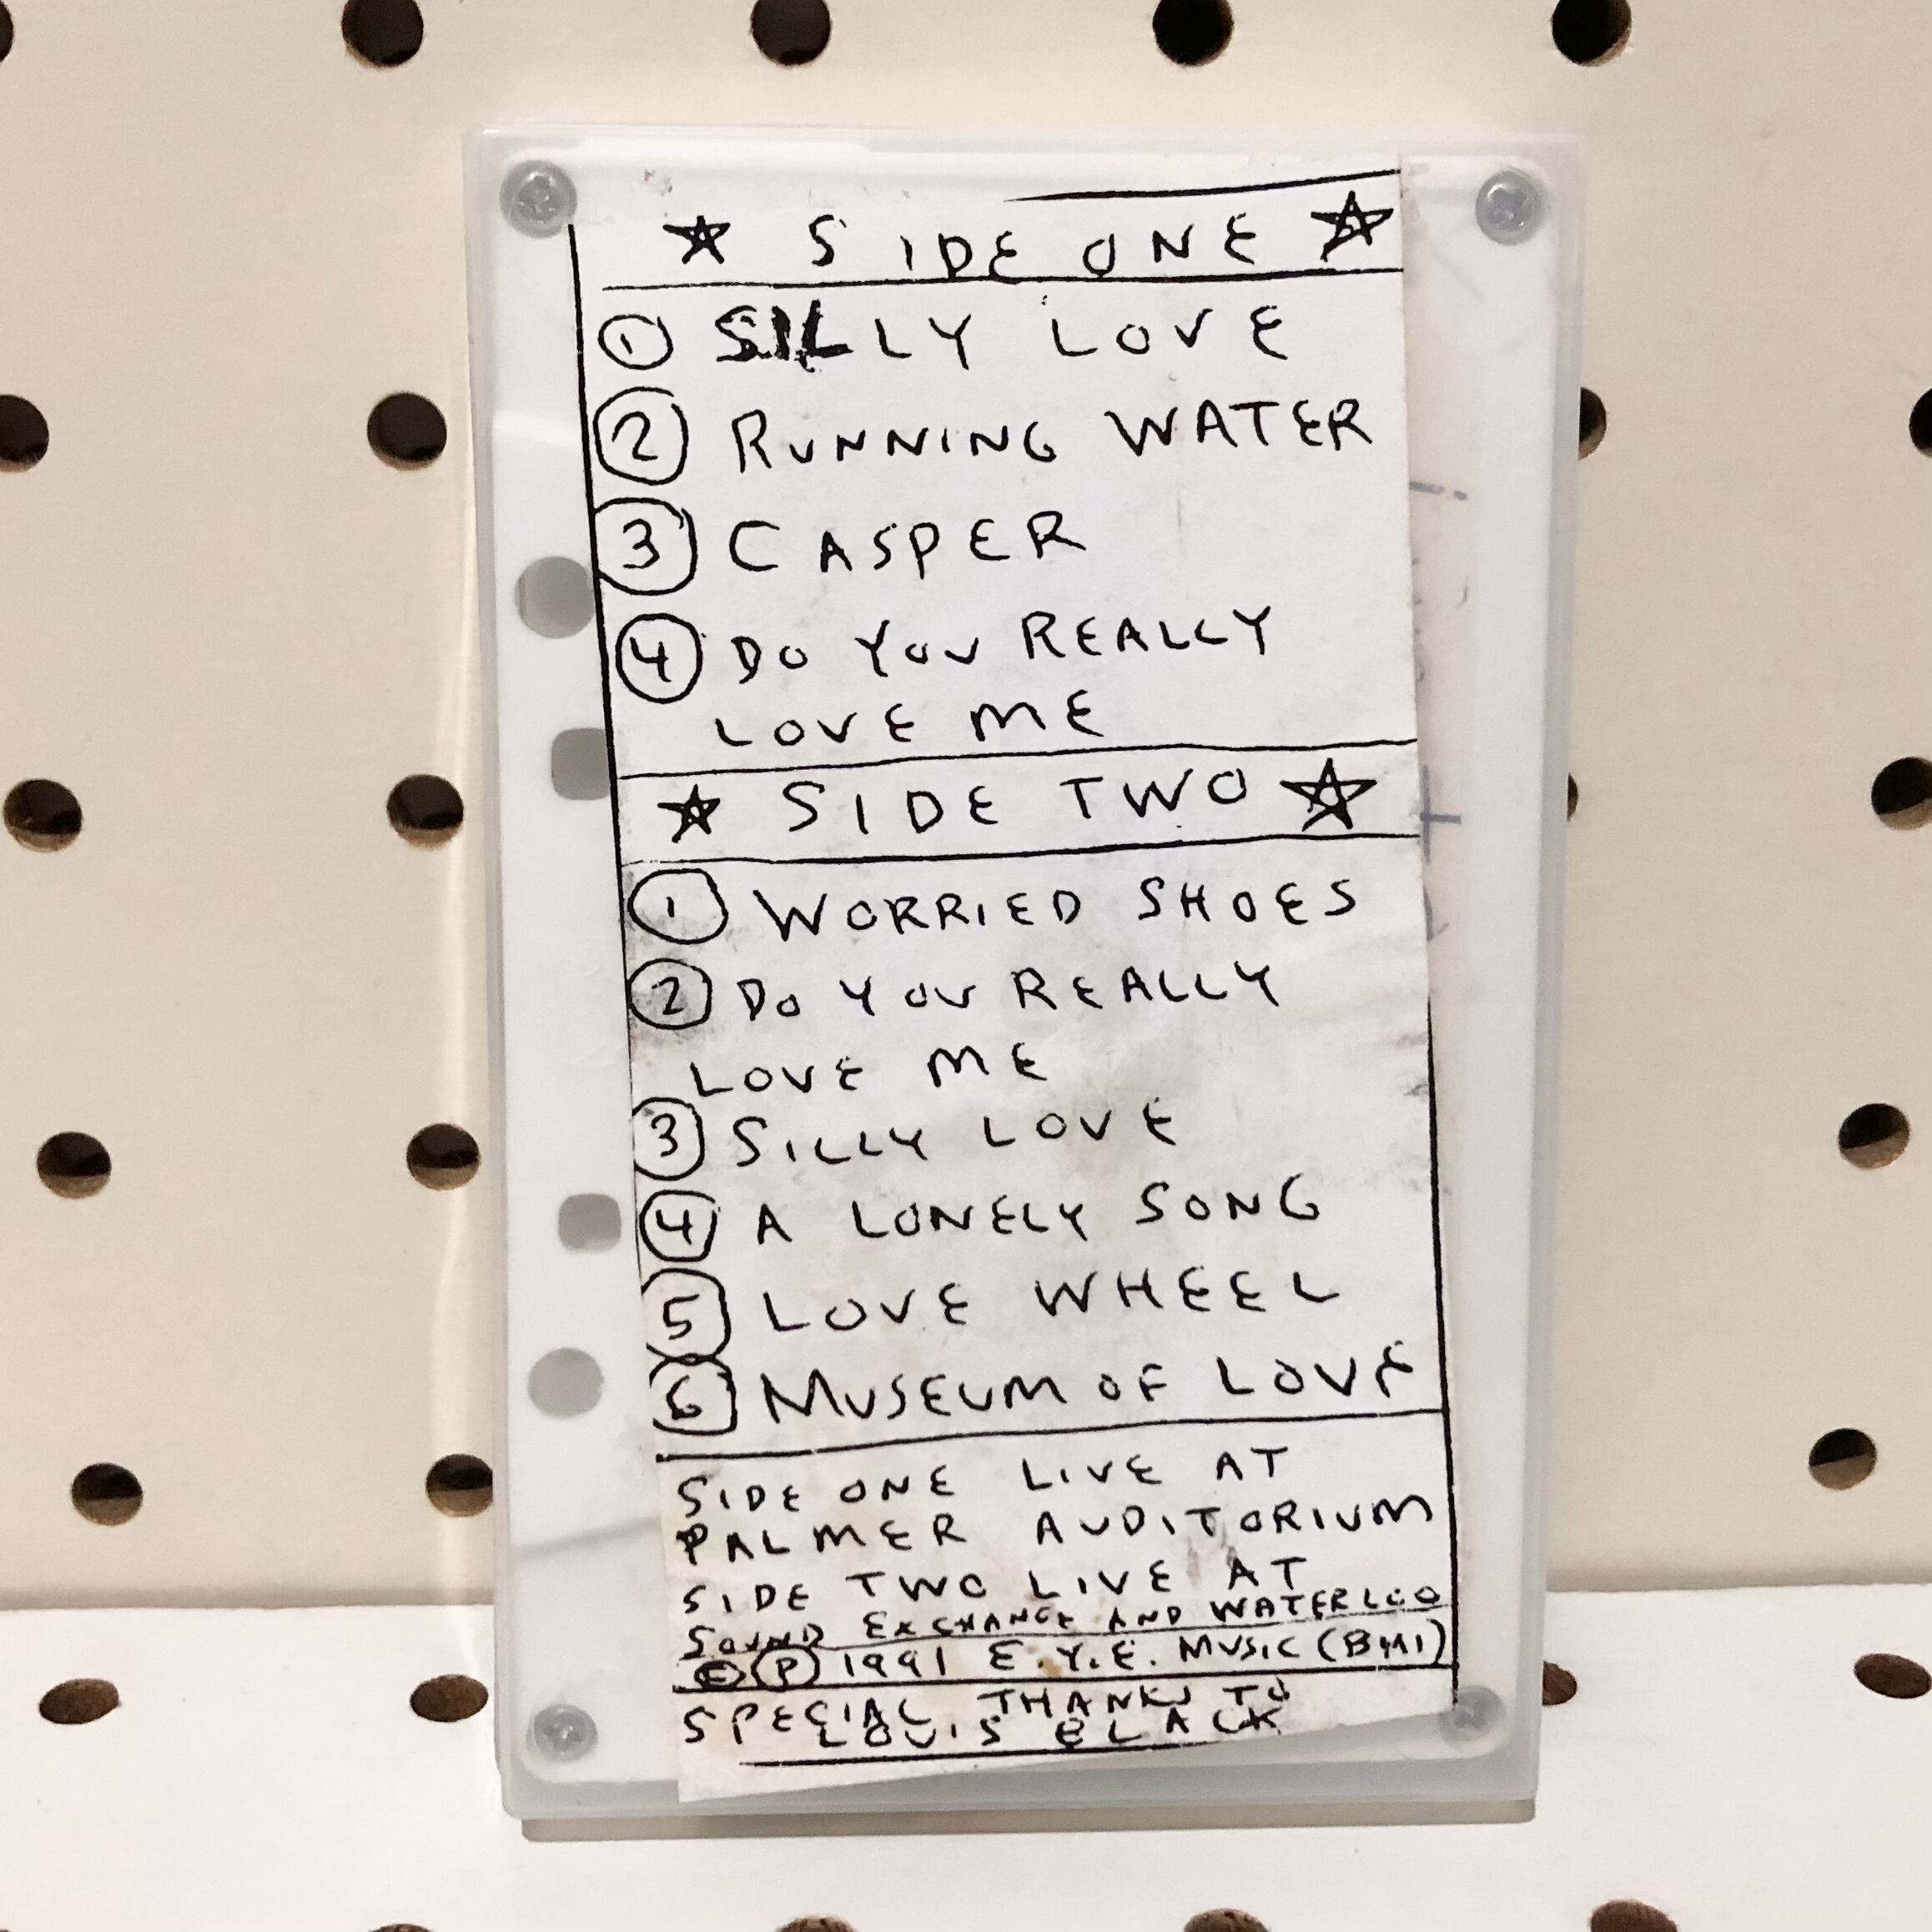 ★ SIDE ONE ★
① SILLY LOVE
② RUNNING WATER
③ CASPER
④ DO YOU REALLY
LOVE ME
★ SIDE TWO ★
① WORRIED SHOES
② DO YOU REALLY
LOVE ME
③ SILLY LOVE
④ A LONELY SONG
⑤ LOVE WHEEL
⑥ MUSEUM OF LOVE
SIDE ONE LIVE AT
PALMER AUDITORIUM
SIDE TWO LIVE AT
SOUND EXCHANGE AND WATERLOO
© ℗ 1991 E.Y.E. MUSIC (BMI)
SPECIAL THANKS TO
LOUIS BLACK